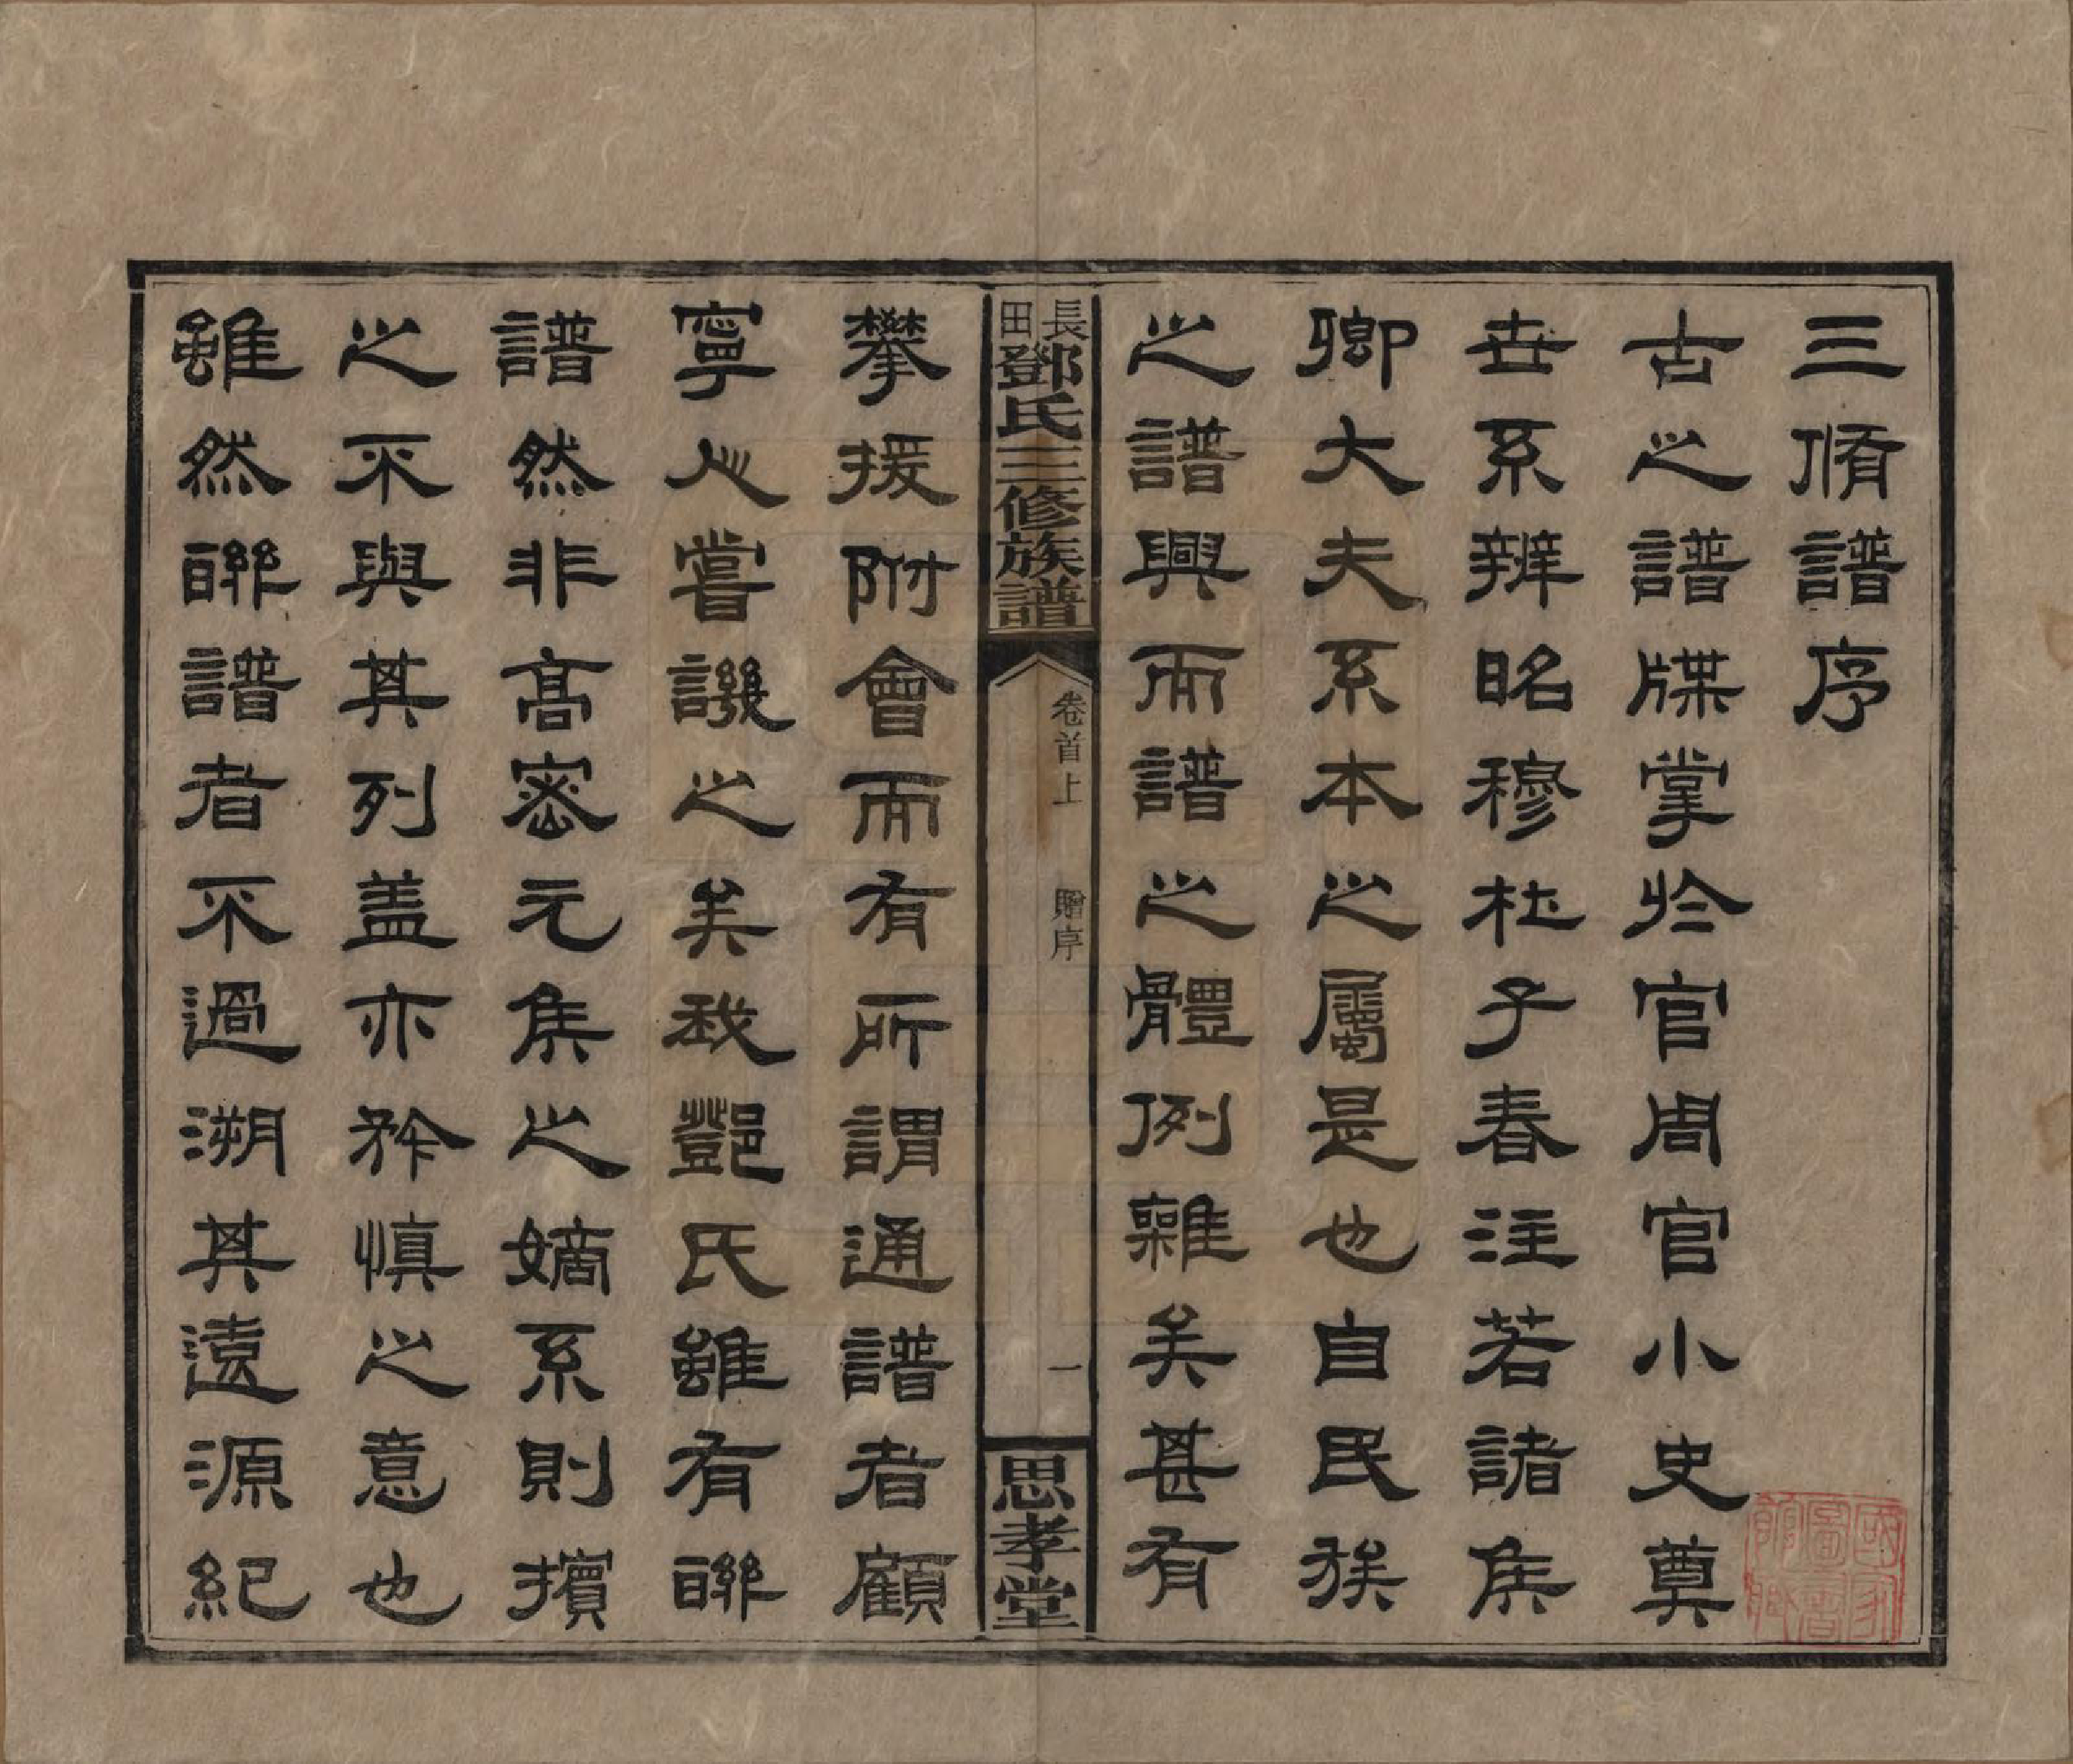 三脩譜序
古之譜牒掌於官周官小史奠
世系辨昭穆杜子春注若諸侯
卿大夫系本之屬是也自民族
之譜興而譜之體例雜矣甚有
長田鄧氏三修族譜
卷首上 贈序 一
思孝堂
攀援附會而有所謂通譜者顧
寧人嘗譏之矣我鄧氏雖有聯
譜然非高密元侯之嫡系則擯
之不與其列蓋亦矜慎之意也
雖然聯譜者不過溯其遠源紀
國家圖書館藏